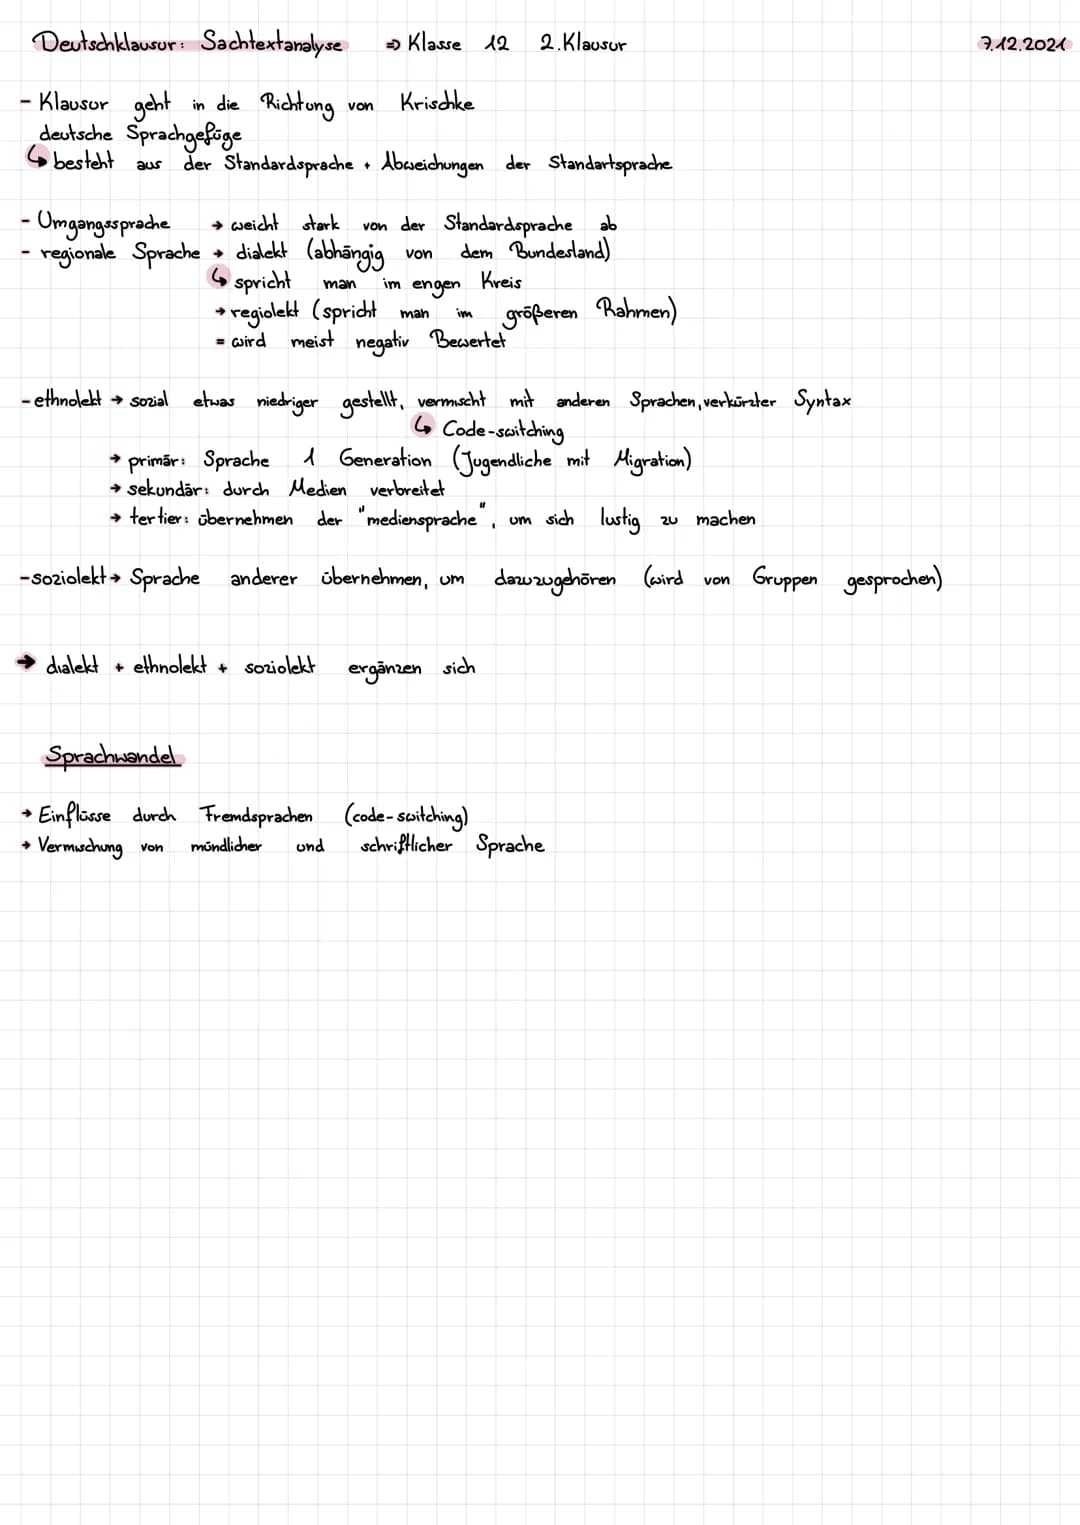 Deutschklausur: Sachtextanalyse ⇒ Klasse 12 2.Klausur 7.12.2021
- Klausur geht in die Richtung von Krischke
deutsche Sprachgefüge
↳ besteht aus der Standardsprache + Abweichungen der Standartsprache
- Umgangssprache → weicht stark von der Standardsprache ab
- regionale Sprache → dialekt (abhängig von dem Bundesland)
↳ spricht man im engen Kreis
→ regiolekt (spricht man im größeren Rahmen)
= wird meist negativ Bewertet
- ethnolekt → sozial etwas niedriger gestellt, vermischt mit anderen Sprachen, verkürzter Syntax
↳ Code-switching
→ primär: Sprache 1 Generation (Jugendliche mit Migration)
→ sekundär: durch Medien verbreitet
→ tertier: übernehmen der "mediensprache", um sich lustig zu machen
- soziolekt → Sprache anderer übernehmen, um dazuzugehören (wird von Gruppen gesprochen)
→ dialekt + ethnolekt + soziolekt ergänzen sich
Sprachwandel
→ Einflüsse durch Fremdsprachen (code-switching)
→ Vermischung von mündlicher und schriftlicher Sprache